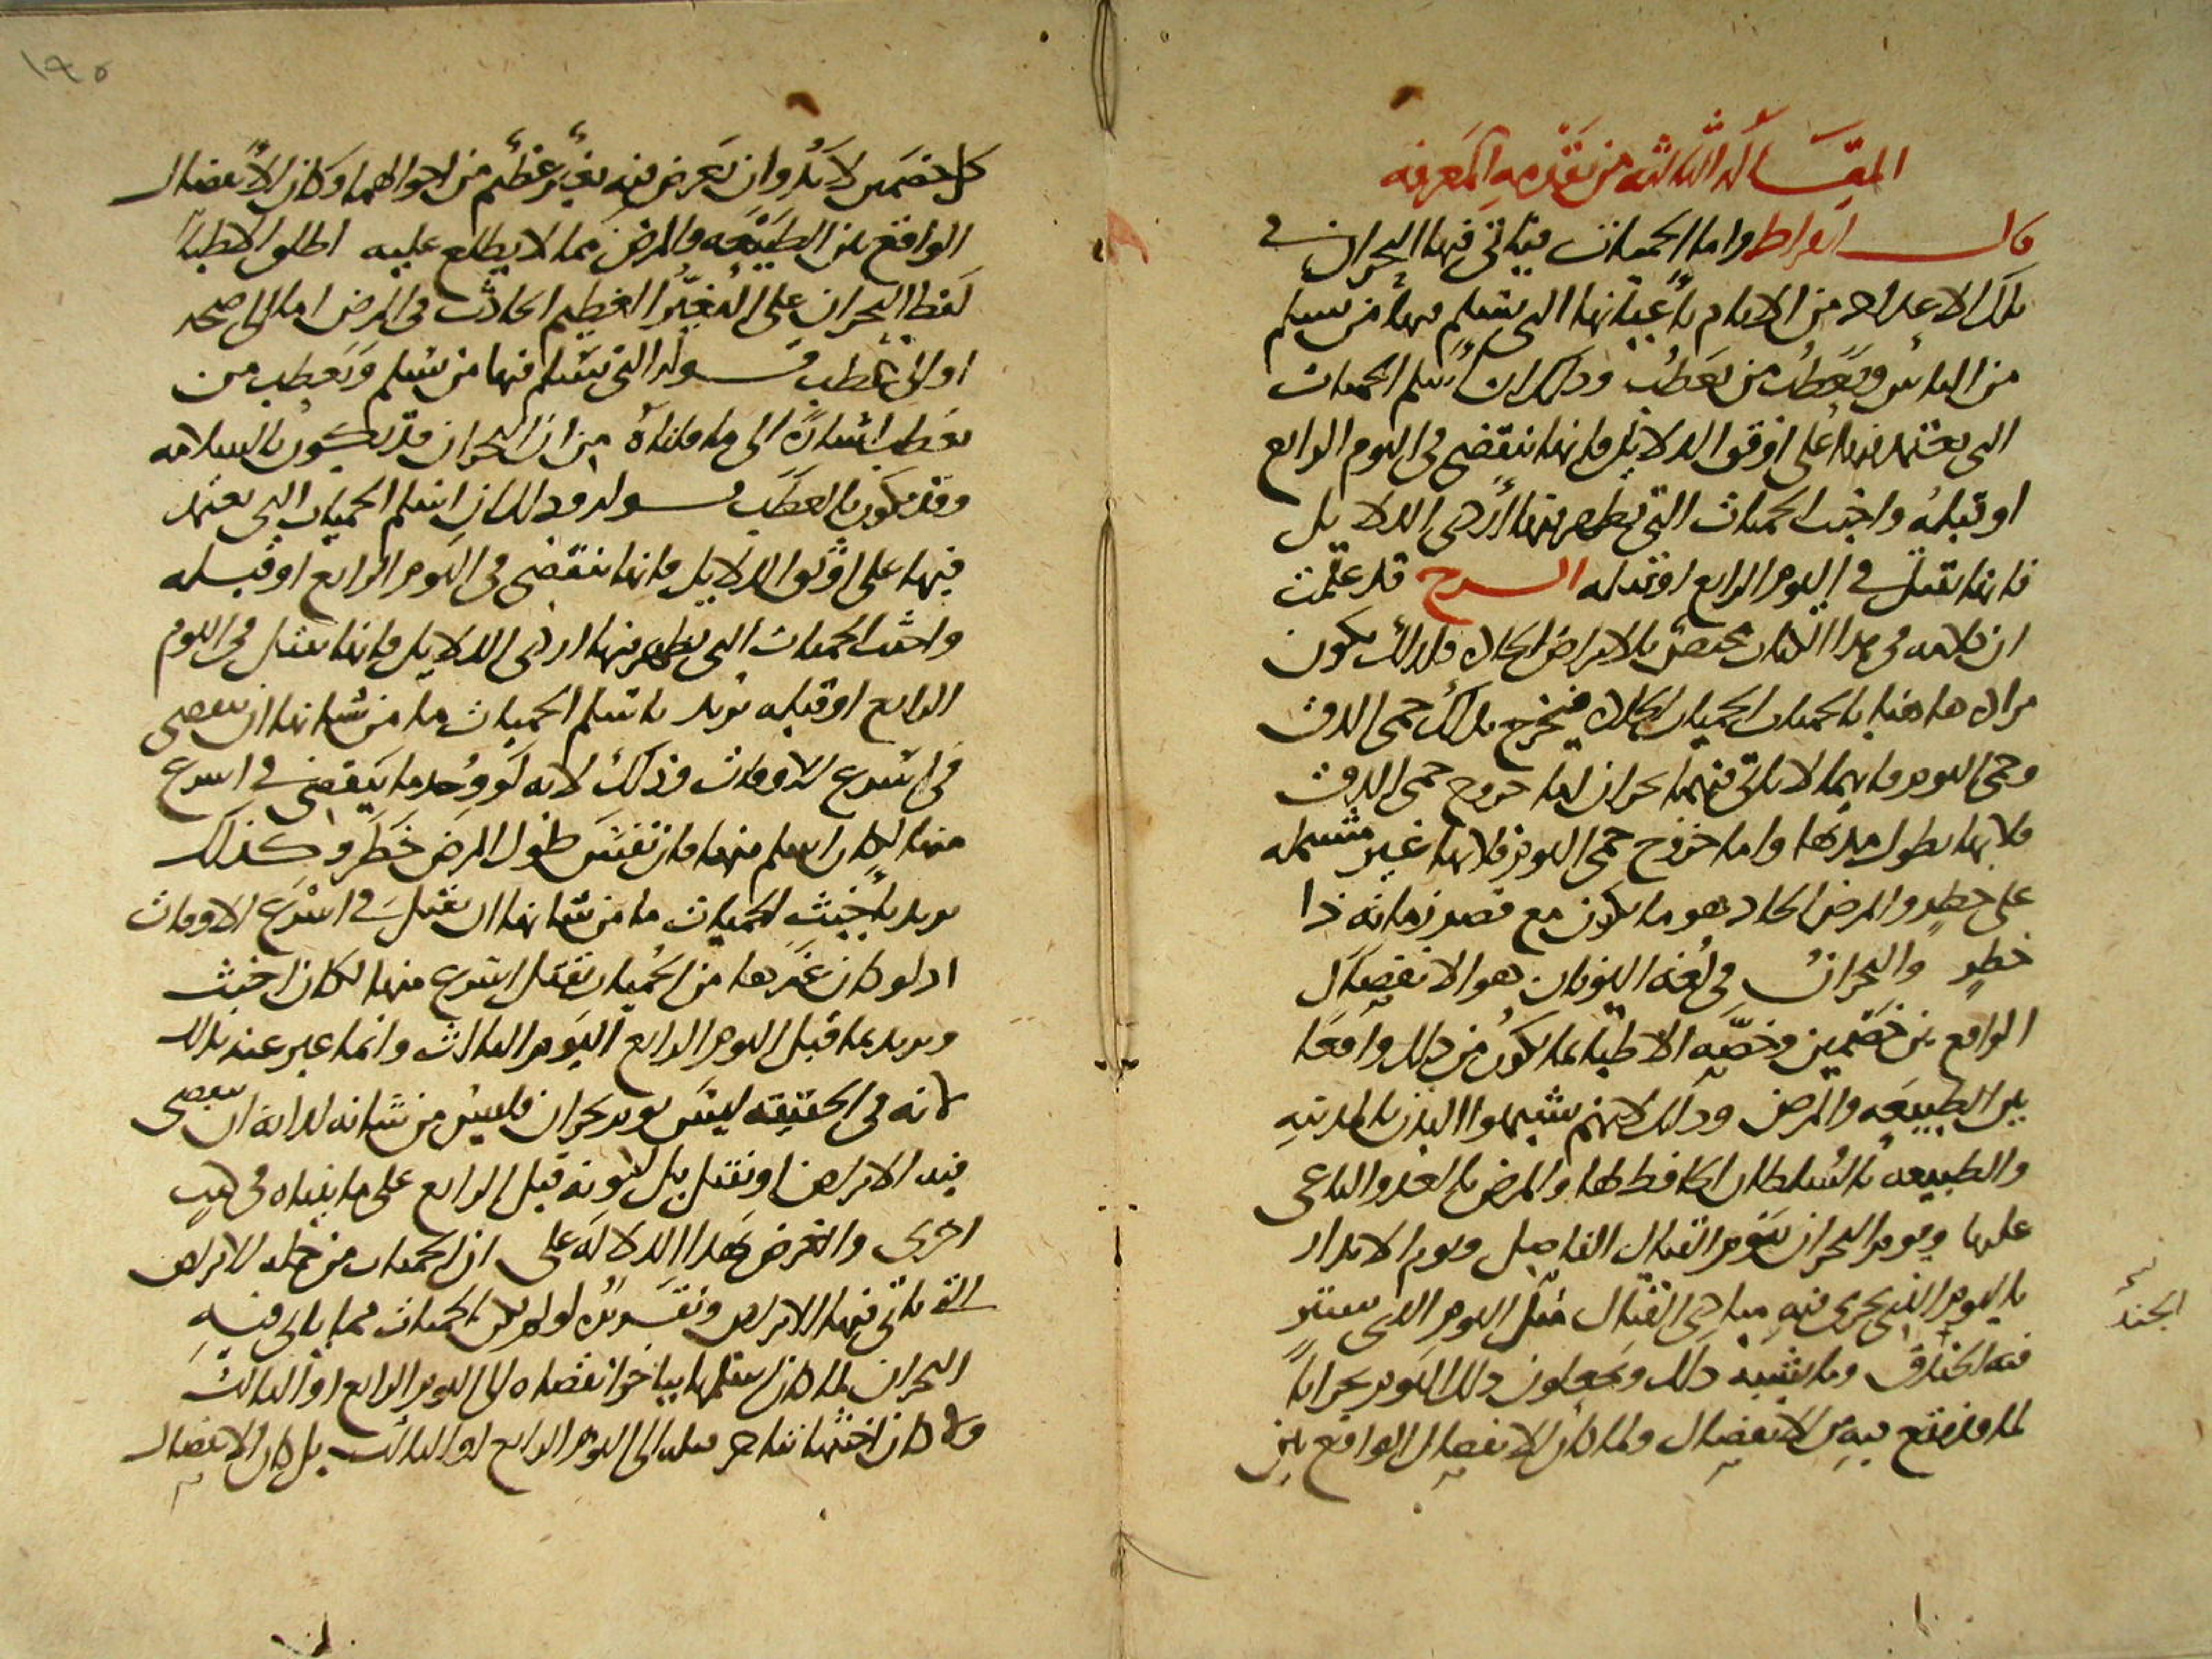 المقالة الثالثة من تقدمة المعرفة
قال ابقراط واما الحميات فياتي فيها البحران في
تلك الاعداد من الايام باعيانها التي يسلم فيها من يسلم
من الناس ويعطب من يعطب وذلك ان اسلم الحميات
التي يعتمد فيها على اوثق الدلايل فانها تنقضي في اليوم الرابع
او قبله واخبث الحميات التي تظهر فيها اردى الدلايل
فانها تقتل في اليوم الرابع او قبله الشرح قد علمت
ان كلامه في هذا الكتاب مختص بالامراض الحادة فلذلك يكون
مراده هاهنا بالحميات الحميات الحادة فيخرج بذلك حمى الدق
وحمى اليوم فانهما لا ياتي فيهما بحران اما خروج حمى الدق
فلانها يطول مدتها واما خروج حمى اليوم فلانها غير مشتمله
على خطر والمرض الحاد هو ما يكون مع قصر زمانه ذا
خطر والبحران في لغة اليونان هو الانفصال
الواقع بين خصمين وخصه الاطباء بما يكون من ذلك واقعا
بين الطبيعه والمرض وذلك لانهم شبهوا البدن بالمدينه
والطبيعه بالسلطان الحافظ لها والمرض بالعدو الباغي
عليها ويوم البحران بيوم القتال الفاصل ويوم الانذار
باليوم الذي يجري فيه مبادي القتال مثل اليوم الذي يستتر
الجند
فيه الخنادق وما يشبه ذلك ويجعلون ذلك اليوم بحرانا
لما قد يقع فيه من الانفصال ولما كان الانفصال الواقع بين
١٩٥
كل خصمين لا بد وان يعرض فيه تغير عظيم من احوالهما وكان الانفصال
الواقع بين الطبيعه والمرض مما لا يطلع عليه اطلق الاطباء
لفظ البحران على التغير العظيم الحادث في المرض اما الى صحه
او الى عطب قوله التي يسلم فيها من يسلم ويعطب من
يعطب اشارة الى ما قلناه من ان البحران قد يكون بالسلامه
وقد يكون بالعطب قوله وذلك ان اسلم الحميات التي يعتمد
فيها على اوثق الدلايل فانها تنقضي في اليوم الرابع او قبله
واخبث الحميات التي تظهر فيها اردى الدلايل فانها تقتل في اليوم
الرابع او قبله يريد باسلم الحميات ما من شانها ان تنقضي
في اسرع الاوقات وذلك لانه لو وجد ما ينقضي في اسرع
منها لكان اسلم منها فان نفس طول المرض خطر وكذلك
يريد باخبث الحميات ما من شانها ان تقتل في اسرع الاوقات
اذ لو كان غيرها من الحميات يقتل اسرع منها لكان اخبث
ويريد بما قبل اليوم الرابع اليوم الثالث وانما عبر عنه بذلك
لانه في الحقيقه ليس يوم بحران فليس من شانه لذاته ان تنقضي
فيه الامراض او تقتل بل لكونه قبل الرابع على ما بيناه في كتب
اخرى والغرض بهذا الدلاله على ان الحميات من جملة الامراض
التي ياتي فيها الامراض وتقريره لو لم تكن الحميات مما ياتي فيه
البحران لما كان اسلمها يتاخر انقضاه الى اليوم الرابع او الثالث
ولا كان اخبثها يتاخر قتله الى اليوم الرابع او الثالث بل كان الانفصال